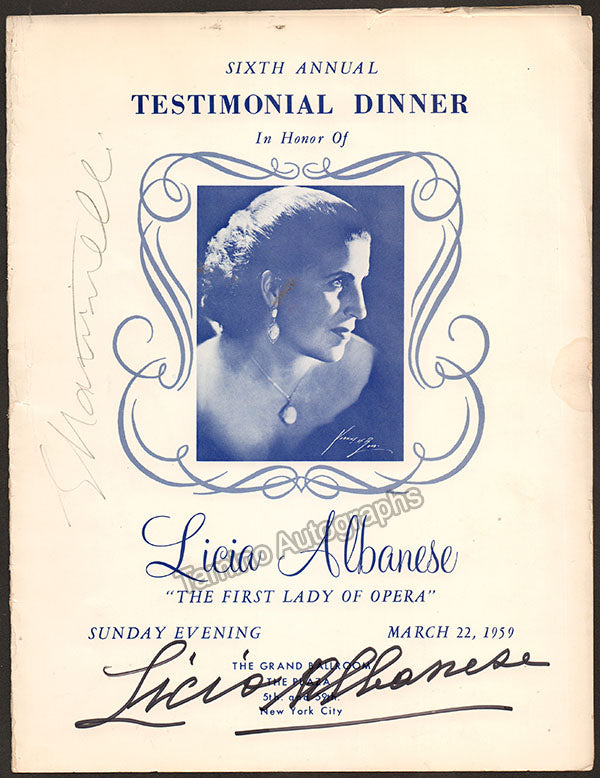 SIXTH ANNUAL
TESTIMONIAL DINNER
In Honor Of
Licia Albanese
Tamino Autographs
"THE FIRST LADY OF OPERA"
SUNDAY EVENING MARCH 22, 1959
THE GRAND BALLROOM
THE PLAZA
5th. and 59th.
New York City
Licia Albanese